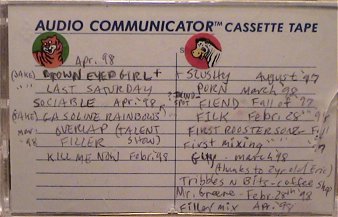 AUDIO COMMUNICATOR™ CASSETTE TAPE
Apr. 98
(JAKE) BROWN EYED GIRL +
LAST SATURDAY
SOCIABLE Apr. '98
(JAKE) GASOLINE RAINBOWS
OVERLAP (TALENT
98 FILLER SHOW)
KILL ME NOW Feb. '98
+ SLUSHY August '97
PORN March 98
FIEND Fall of '97
FILK Febr. 28th 98
FIRST ROOSTER SONG -
First mixing
GUY - march 98
(thanks to 2yr old Eric)
Tribbles N Bits - coffee shop
Mr. Greene - Febr. 28th 98
Filler mix Apr. 98